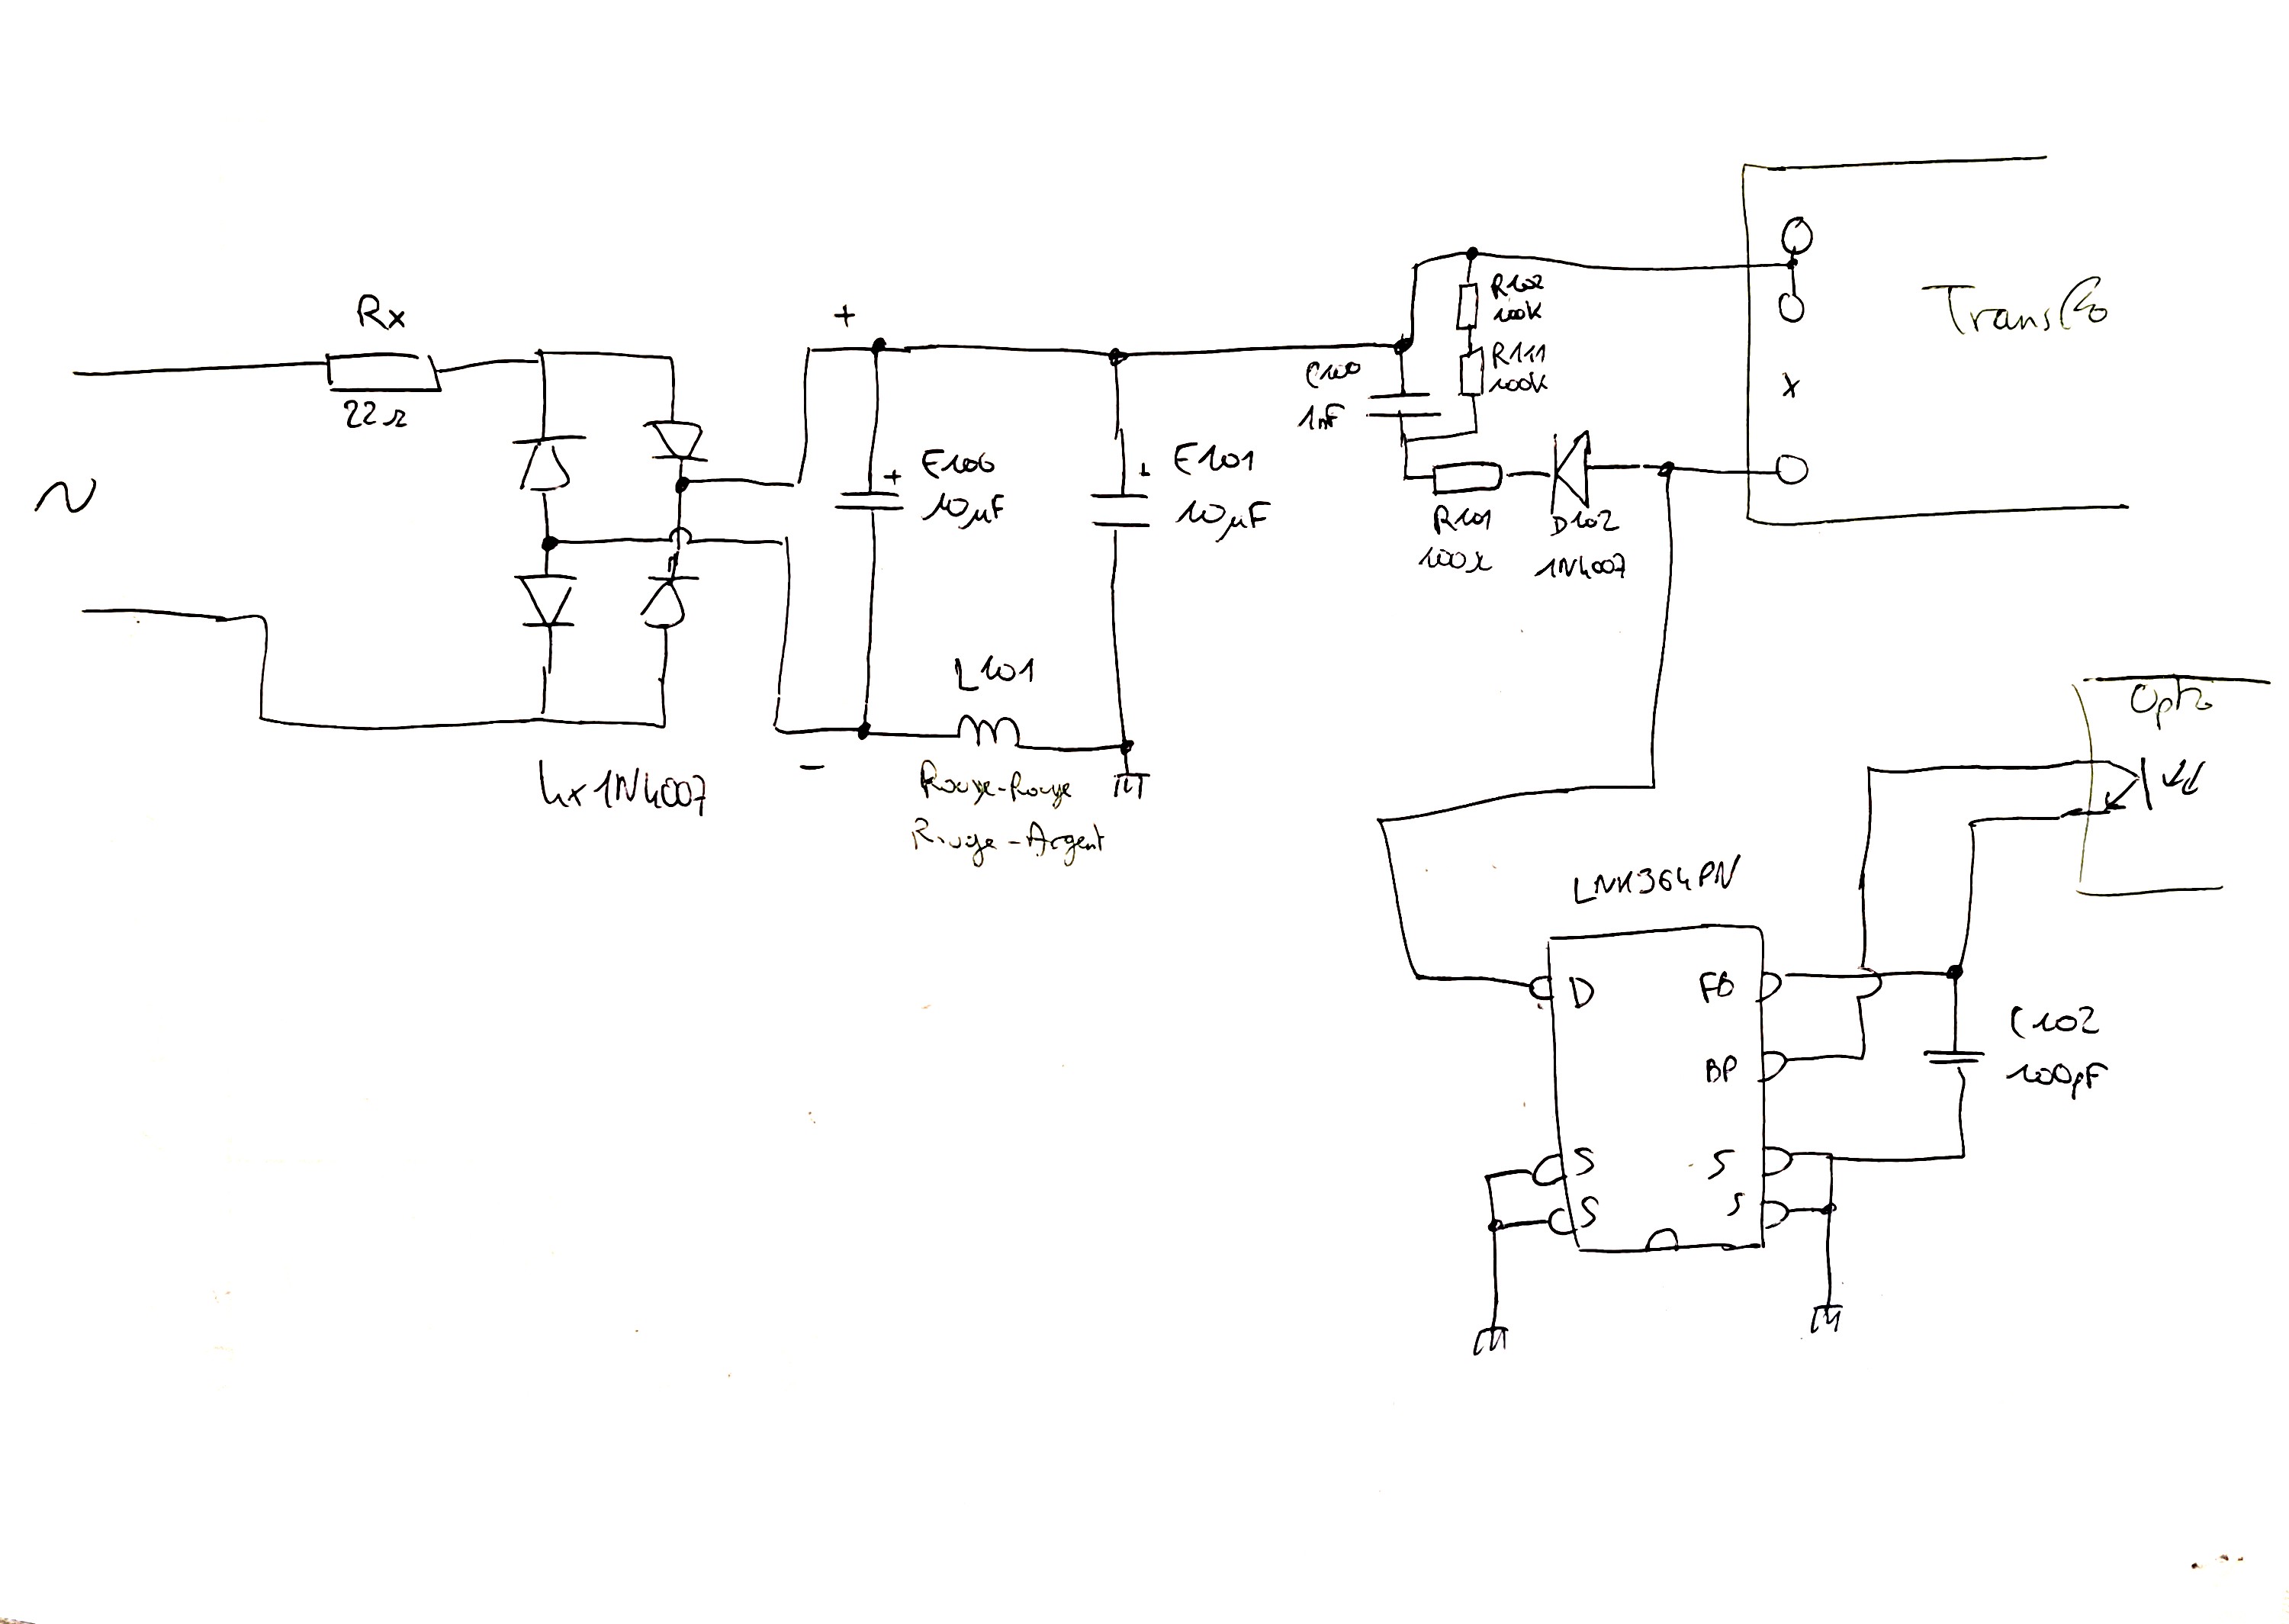 Rx
22Ω
~
4x1N4007
+
-
E100
+
10µF
E101
+
10µF
L101
Rouge-Rouge
Rouge-Argent
C100
1nF
R102
100K
R111
100K
R101
100Ω
D102
1N4007
Transfo
x
Opto
LNK364PN
D
FB
BP
S
S
S
S
C102
100pF